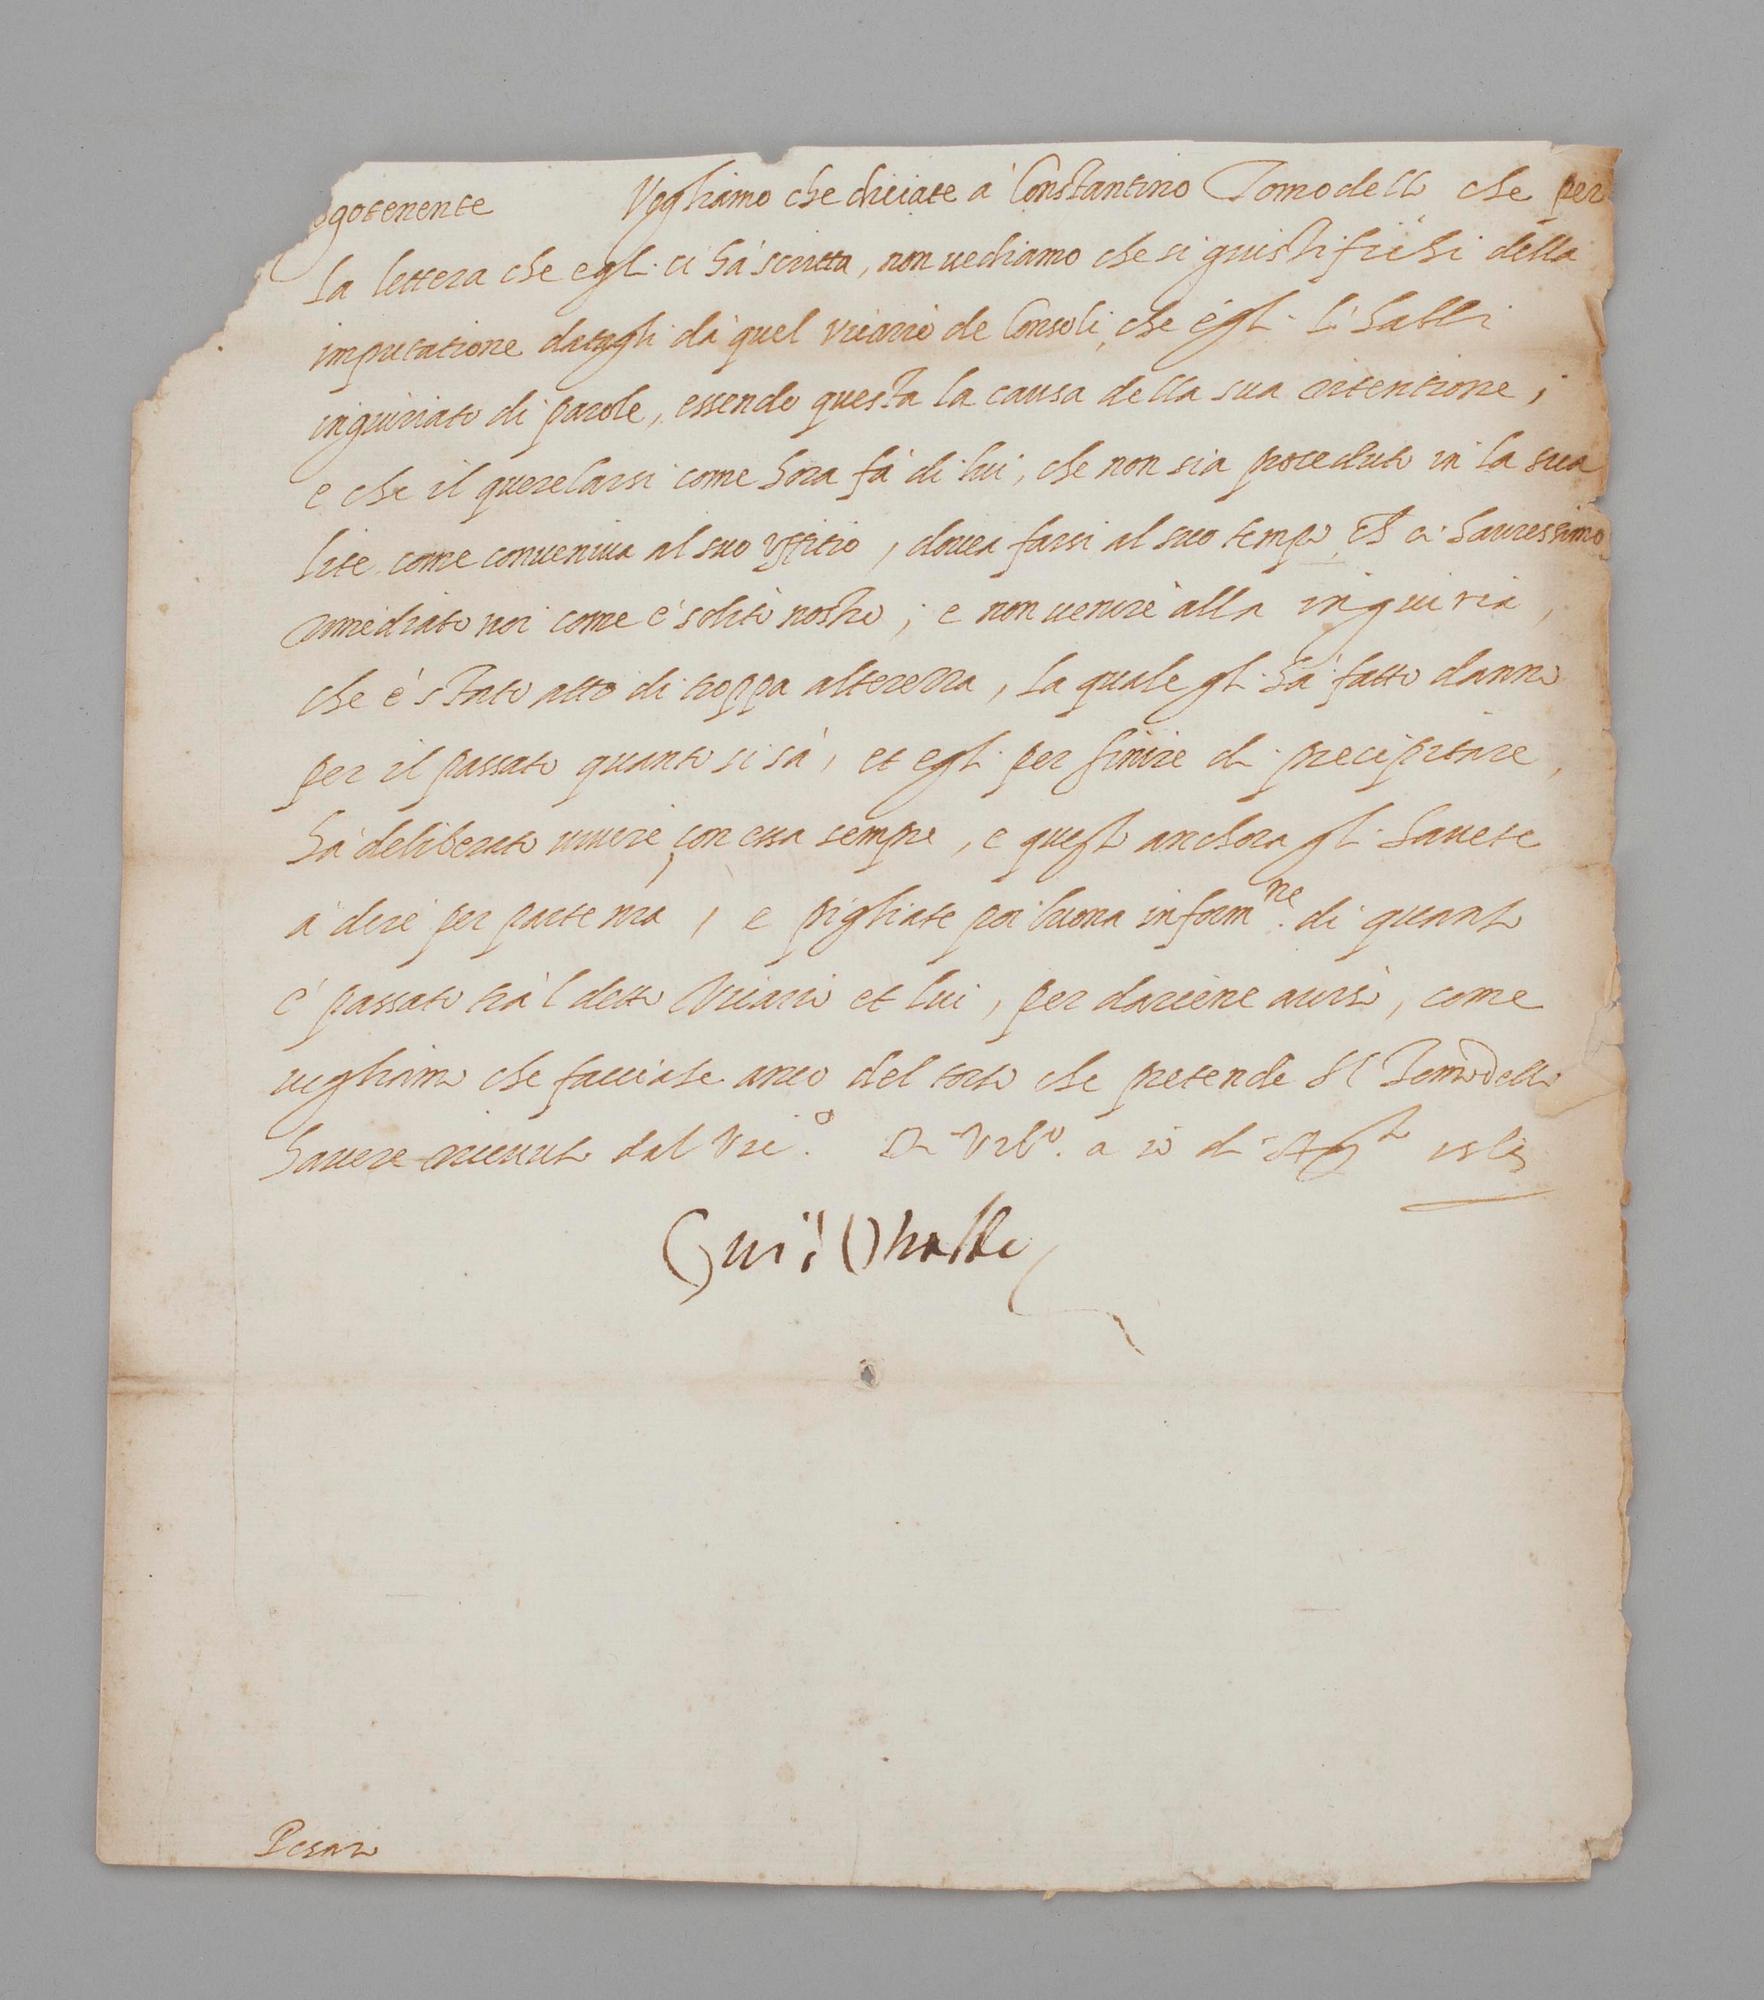 ogotenente Vogliamo che diciate à Constantino Tomodello che per
la lettera che egli ci hà scritta, non vediamo che si giustifichi della
imputatione datagli da quel Vicario de Consoli, che egli li habbi
ingiuriato di parole, essendo questa la causa della sua ritentione,
e che il querelarsi come hora fà di lui, che non sia proceduto in la sua
lite come conveniva al suo uffitio, dovea farsi al suo tempo et ci havressimo
rimediato noi come è solito nostro, e non venire alla ingiuria,
che è stato atto di troppa alterezza, la quale gli hà fatto danno
per il passato quanto si sà, et egli per finire di precipitare,
hà deliberato vivere con essa sempre, e questo anchora gli havete
à dire per parte nra, e pigliate poi buona inform.ne di quanto
è passato trà l detto Vicario et lui, per darcene aviso, come
vogliamo che facciate anco del torto che pretende il Tomodello
havere ricevuto dal Vic.o Di Urb.o a di Ag.to
Guid'Ubaldo
Pesaro